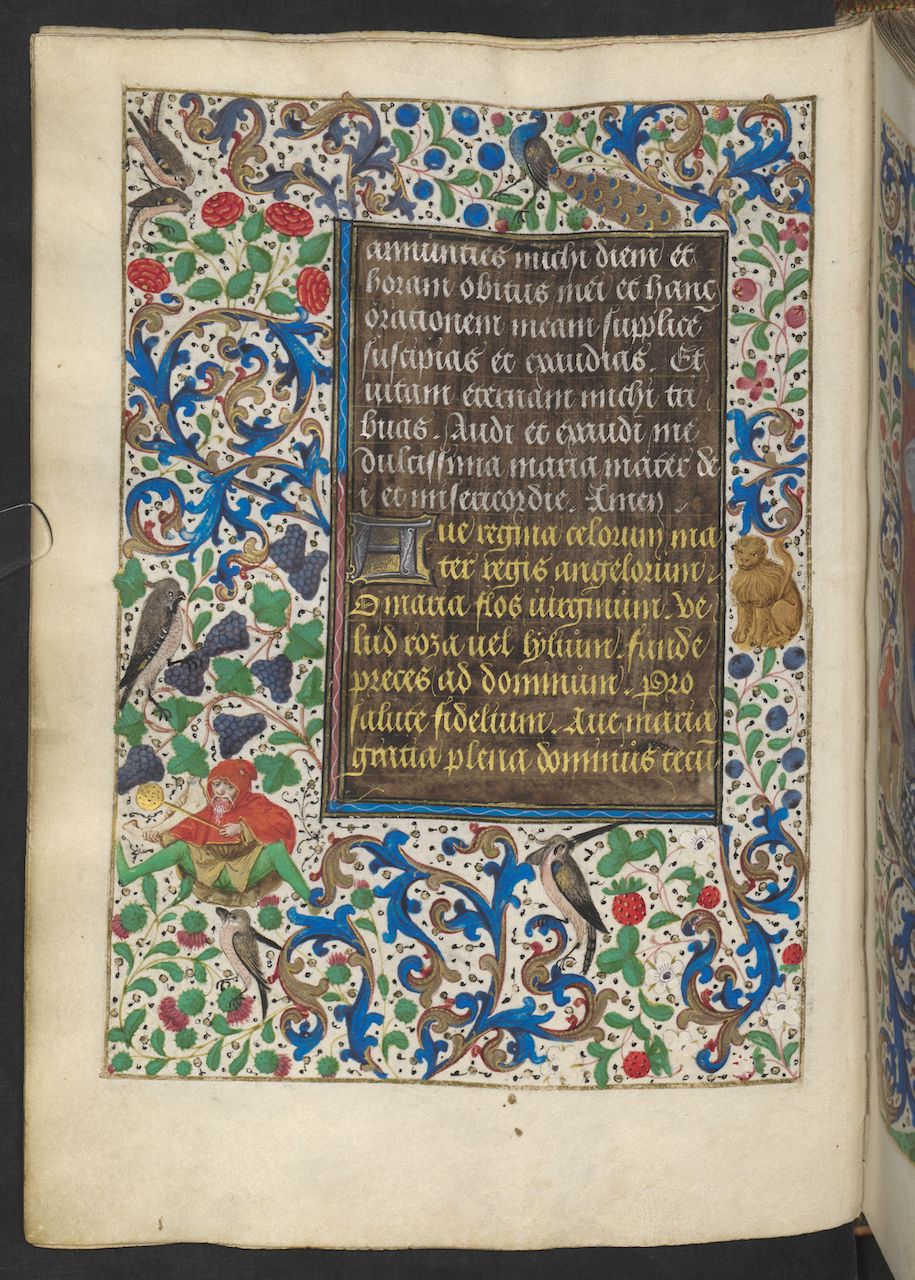 annunties michi diem et
horam obitus mei et hanc
orationem meam supplicē
suscipias et exaudias. Et
uitam eternam michi tri
buas. Audi et exaudi me
dulcissima maria mater de
i et misericordie. Amen
Aue regina celorum ma
ter regis angelorum.
O maria flos uirginum. Ve
lud roza uel lylium. funde
preces ad dominum. Pro
salute fidelium. Aue maria
gratia plena dominus tecū